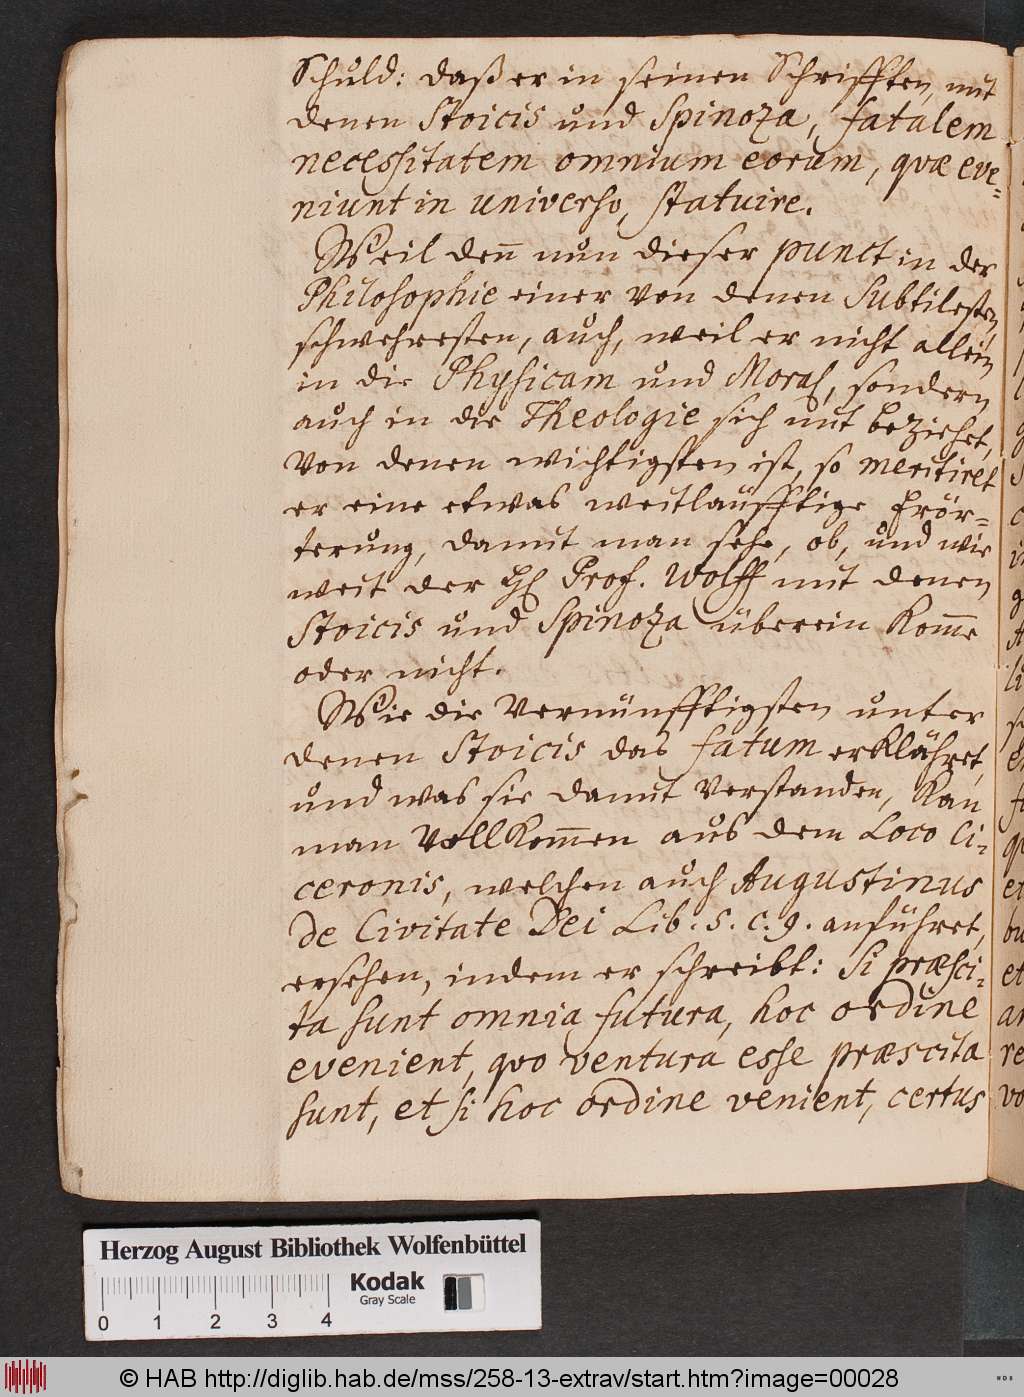 Schuld: daß er in seinen Schrifften, mit
denen Stoicis und Spinoza, fatalem
necessitatem omnium eorum, quæ eve=
niunt in universo, statuire.
Weil den̄ nun dieser punct in der
Philosophie einer von denen Subtilesten,
schwehresten, auch, weil er nicht allein
in die Physicam und Moral, sondern
auch in die Theologie sich mit beziehet,
von denen wichtigsten ist, so meritiret
er eine etwas weitläufftige Erör=
terung, damit man sehe, ob, und wie
weit der H Prof. Wolff mit denen
Stoicis und Spinoza überein kom̄e
oder nicht.
Wie die Vernünfftigsten unter
denen Stoicis das fatum erklähret,
und was sie damit verstanden, kan
man vollkom̄en aus dem Loco Ci=
ceronis, welchen auch Augustinus
de Civitate Dei Lib. 5. c. 9. anführet,
ersehen, indem er schreibt: Si præsci=
ta sunt omnia futura, hoc ordine
evenient, quo ventura esse præscita
sunt, et si hoc ordine venient, certus
Herzog August Bibliothek Wolfenbüttel
Kodak
Gray Scale
0 1 2 3 4
© HAB http://diglib.hab.de/mss/258-13-extrav/start.htm?image=00028